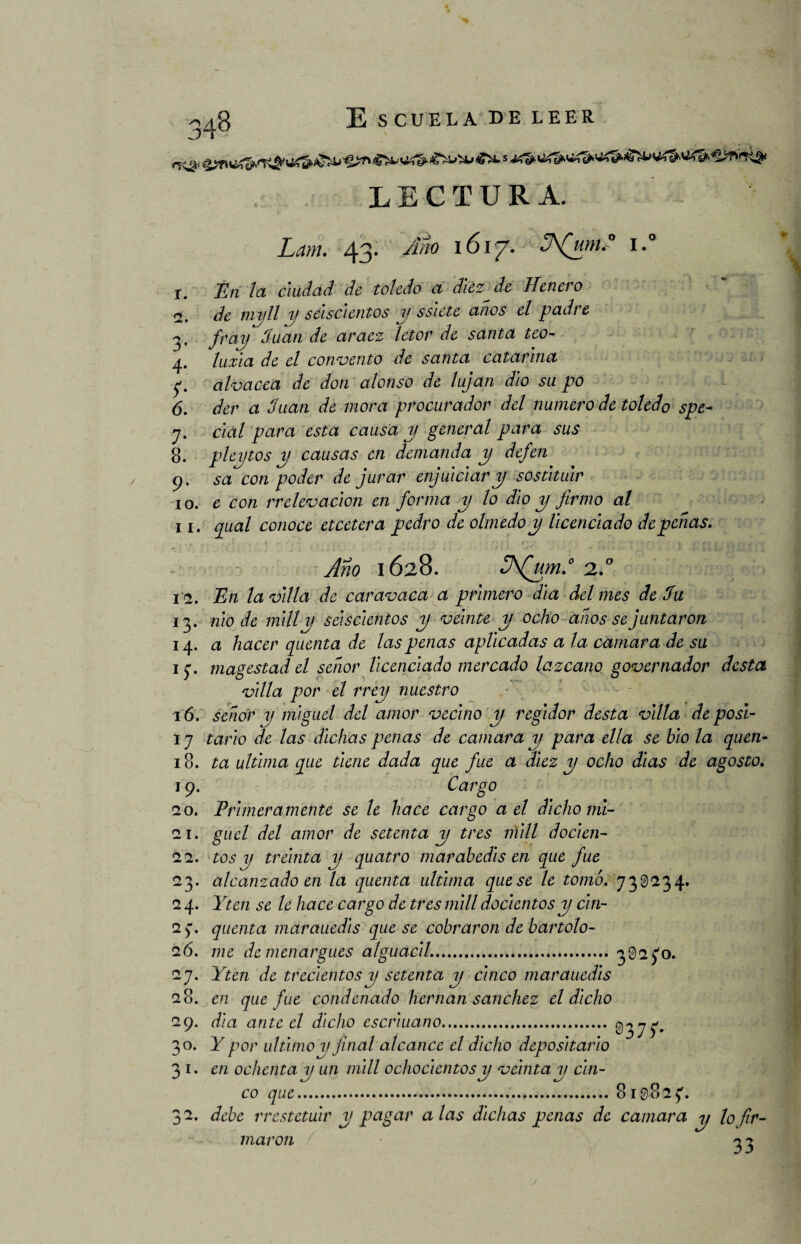 348 ESCUELA DE LEER
LECTURA.
Lam. 43. Año 1617. Num.° 1.°
1. En la ciudad de toledo a diez de Henero
2. de myll y seiscientos y ssiete años el padre
3. fray Juan de araez letor de santa teo-
4. luxia de el convento de santa catarina
5. alvacea de don alonso de lujan dio su po
6. der a Juan de mora procurador del numero de toledo spe-
7. cial para esta causa y general para sus
8. pleytos y causas en demanda y defen
9. sa con poder de jurar enjuiciar y sostituir
10. e con rrelevacion en forma y lo dio y firmo al
11. qual conoce etcetera pedro de olmedo y licenciado de peñas.
Año 1628. Num.° 2.°
12. En la villa de caravaca a primero dia del mes de Ju
13. nio de mill y seiscientos y veinte y ocho años se juntaron
14. a hacer quenta de las penas aplicadas a la camara de su
15. magestad el señor licenciado mercado lazcano governador desta
villa por el rrey nuestro
16. señor y miguel del amor vecino y regidor desta villa deposi-
17 tario de las dichas penas de camara y para ella se bio la quen-
18. ta ultima que tiene dada que fue a diez y ocho dias de agosto.
19. Cargo
20. Primeramente se le hace cargo a el dicho mi-
21. guel del amor de setenta y tres mill docien-
22. tos y treinta y quatro marabedis en que fue
23. alcanzado en la quenta ultima que se le tomó. 73@234.
24. Yten se le hace cargo de tres mill docientos y cin-
25. quenta marauedis que se cobraron de bartolo-
26. me de menargues alguacil............ 3@250.
27. Yten de trecientos y setenta y cinco marauedis
28. en que fue condenado hernan sanchez el dicho
29. dia ante el dicho escriuano............ @375.
30. Y por ultimo y final alcance el dicho depositario
31. en ochenta y un mill ochocientos y veinta y cin-
co que............ 81@825.
32. debe rrestetuir y pagar a las dichas penas de camara y lo fir-
maron
33